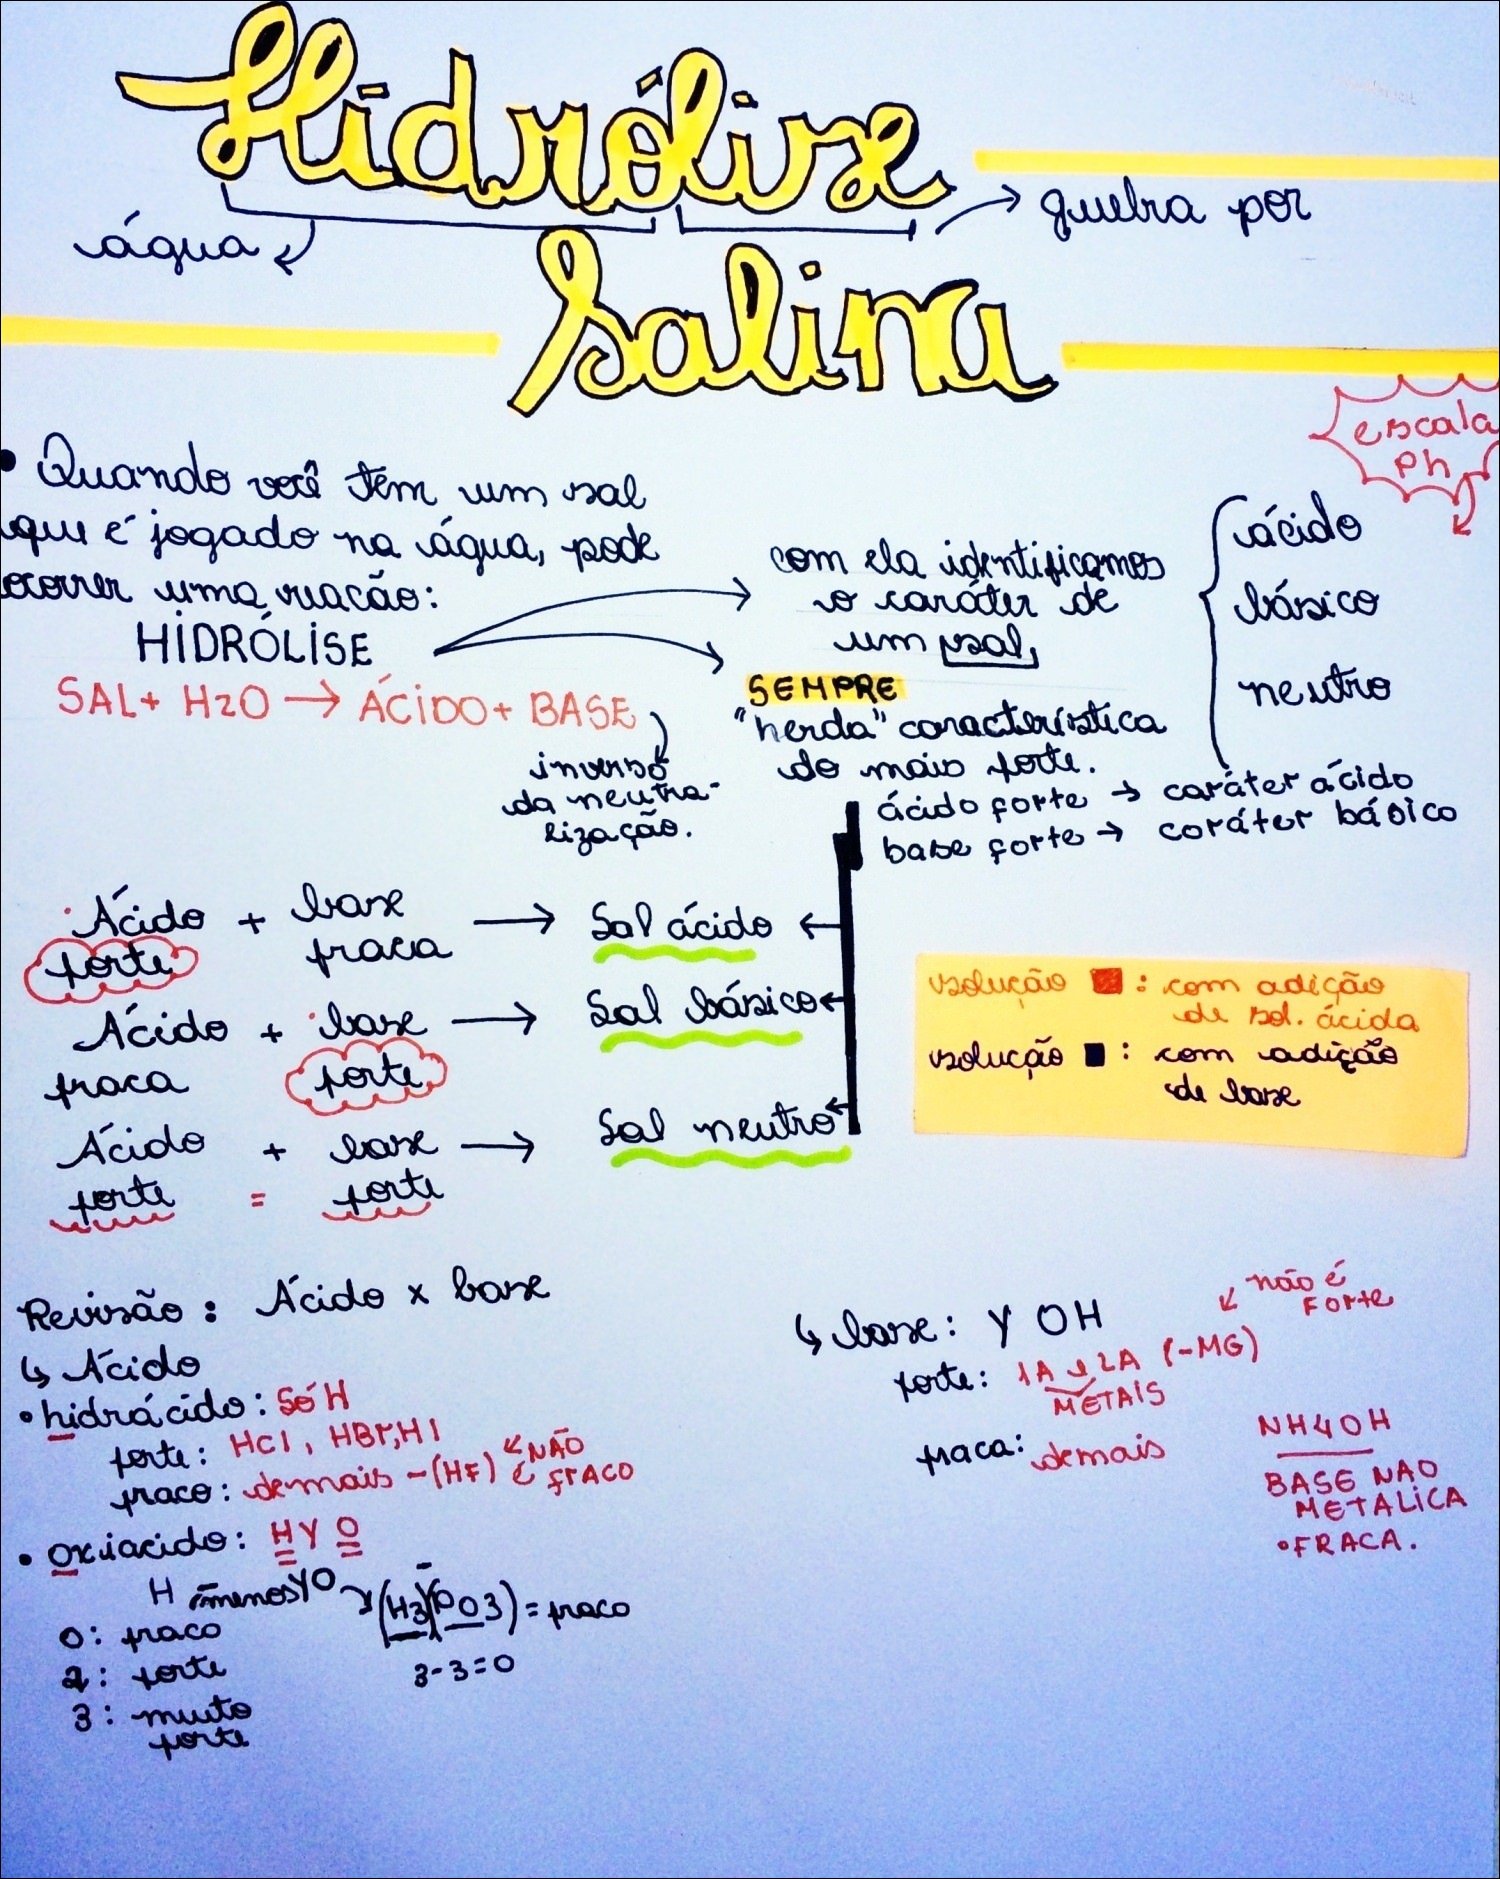 Hidrólise
água
quebra por
Salina
escala
Ph
• Quando você tem um sal
que é jogado na água, pode
ocorrer uma reacão:
HIDRÓLISE
SAL + H2O → ÁCIDO + BASE
inverso
da neutra-
lização.
com ela identificamos
o caráter de
um sal,
SEMPRE
"herda" característica
do mais forte.
ácido
básico
neutro
ácido forte → caráter ácido
base forte → caráter básico
Ácido + base → Sal ácido
forte fraca
Ácido + base → Sal básico
fraca forte
Ácido + base → Sal neutro
forte = forte
solução : com adição
de sol. ácida
solução : com adição
de base
Revisão: Ácido x base
↳ Ácido
• hidrácido: Só H
forte: HCl, HBr, HI
fraco: demais - (HF) ← NÃO
É FRACO
• oxiacido: H Y O
H menos YO → (H3)(PO3) = fraco
3-3=0
0: fraco
2: forte
3: muito
forte
↳ base: Y OH
não é
Forte
forte: 1A e 2A (-MG)
METAIS
fraca: demais
NH4OH
BASE NAO
METALICA
• FRACA.